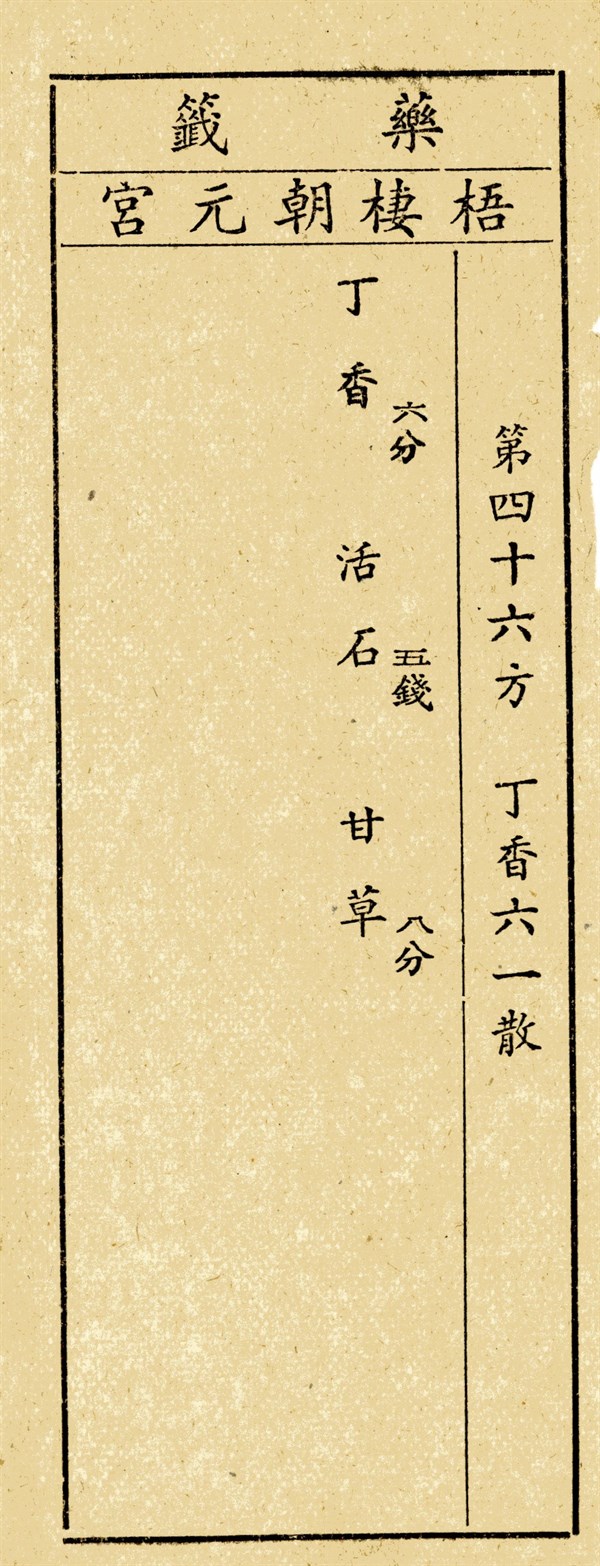 藥籤
梧棲朝元宮
第四十六方 丁香六一散
丁香六分 活石五錢 甘草八分